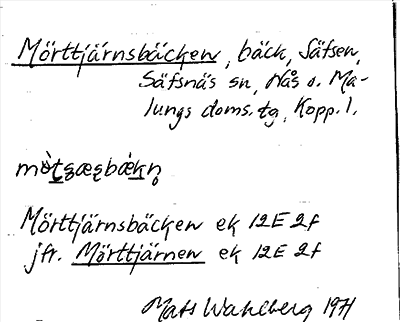 Mörttjärnsbäcken, bäck, Säfsen,
Säfsnäs sn, Nås o. Ma-
lungs doms. tg, Kopp. l.
Mörttjärnsbäcken ek 12E 2f
jfr. Mörttjärnen ek 12E 2f
Mats Wahlberg 1971